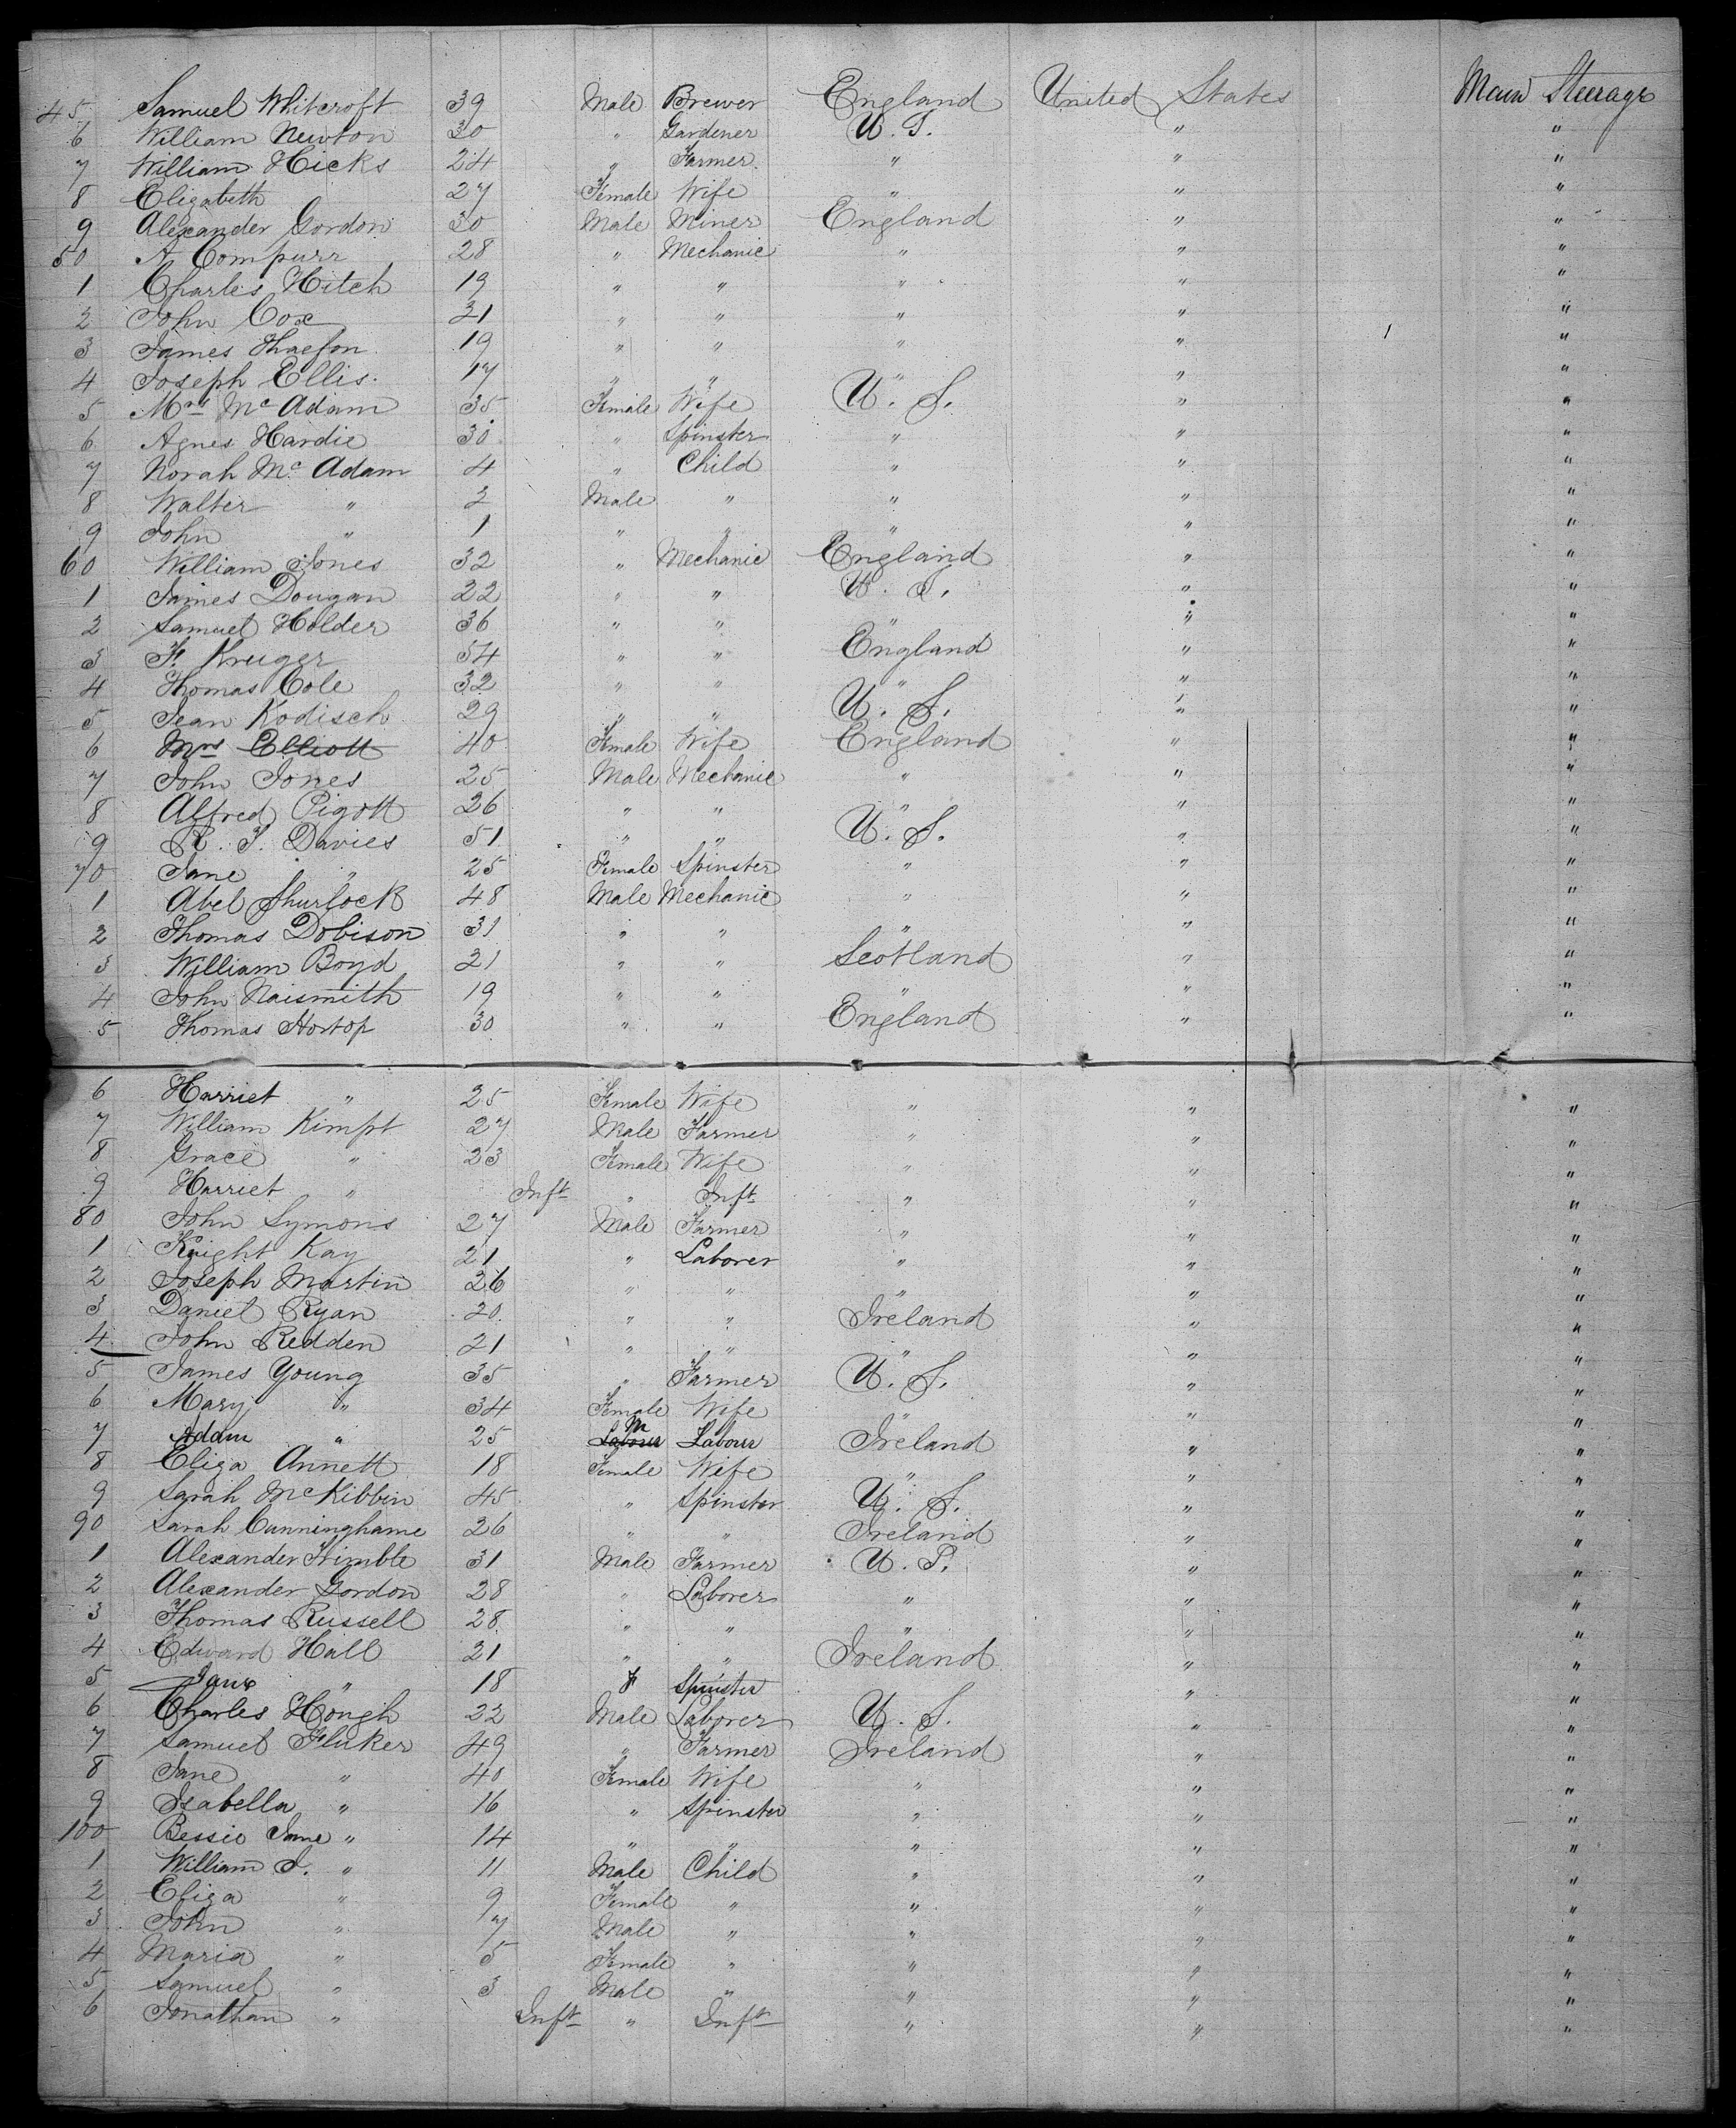 45 Samuel Whitcroft 39 Male Brewer England United States Main Steerage
6 William Newton 30 " Gardener U. S. " "
7 William Hicks 24 " Farmer " " "
8 Elizabeth 27 Female Wife " " "
9 Alexander Gordon 30 Male Miner England " "
50 A Compurr 28 " Mechanic " " "
1 Charles Hitch 19 " " " " "
2 John Cox 31 " " " " "
3 James 19 " " " " "
4 Joseph Ellis. 17 " " " " "
5 Mrs McAdam 35 Female Wife U. S. " "
6 Agnes Hardie 30 " Spinster " " "
7 Norah McAdam 4 " Child " " "
8 Walter " 2 Male " " " "
9 John " 1 " " " " "
60 William Jones 32 " Mechanic England " "
1 James Dougan 22 " " U. S. " "
2 Samuel Holder 36 " " " " "
3 F. Kruger 54 " " England " "
4 Thomas Cole 32 " " " " "
5 Jean Kodisch 29 " " U. S. " "
6 Mrs Elliott 40 Female Wife England " "
7 John Jones 25 Male Mechanic " " "
8 Alfred Pigott 26 " " " " "
9 R. T. Davies 51 " " U. S. " "
70 Jane " 25 Female Spinster " " "
1 Abel Shurlock 48 Male Mechanic " " "
2 Thomas Dobison 31 " " " " "
3 William Boyd 21 " " Scotland " "
4 John Naismith 19 " " " " "
5 Thomas Hortop 30 " " England " "
6 Harriet " 25 Female Wife " " "
7 William Kimpt 27 Male Farmer " " "
8 Grace " 23 Female Wife " " "
9 Harriet " Inft " Inft " " "
80 John Symons 27 Male Farmer " " "
1 Knight Kay 21 " Laborer " " "
2 Joseph Martin 26 " " " " "
3 Daniel Ryan 20 " " Ireland " "
4 John Redden 21 " " " " "
5 James Young 35 " Farmer U. S. " "
6 Mary " 34 Female Wife " " "
7 Addm " 25 M Labour Ireland " "
8 Eliza Annett 18 Female Wife " " "
9 Sarah McKibbin 45 " Spinster U. S. " "
90 Sarah Cunninghame 26 " " Ireland " "
1 Alexander Trimble 31 Male Farmer U. S. " "
2 Alexander Gordon 28 " Laborer " " "
3 Thomas Russell 28 " " " " "
4 Edward Hall 21 " " Ireland " "
5 Jane " 18 F Spinster " "
6 Charles Hough 22 Male Laborer U. S. " "
7 Samuel Fluker 49 " Farmer Ireland " "
8 Jane " 40 Female Wife " " "
9 Isabella " 16 " Spinster " " "
100 Bessie Jane " 14 " " " " "
1 William J. " 11 Male Child " " "
2 Eliza " 9 Female " " " "
3 John " 7 Male " " " "
4 Maria " 5 Female " " " "
5 Samuel " 3 Male " " " "
6 Jonathan " Inft " Inft " " "